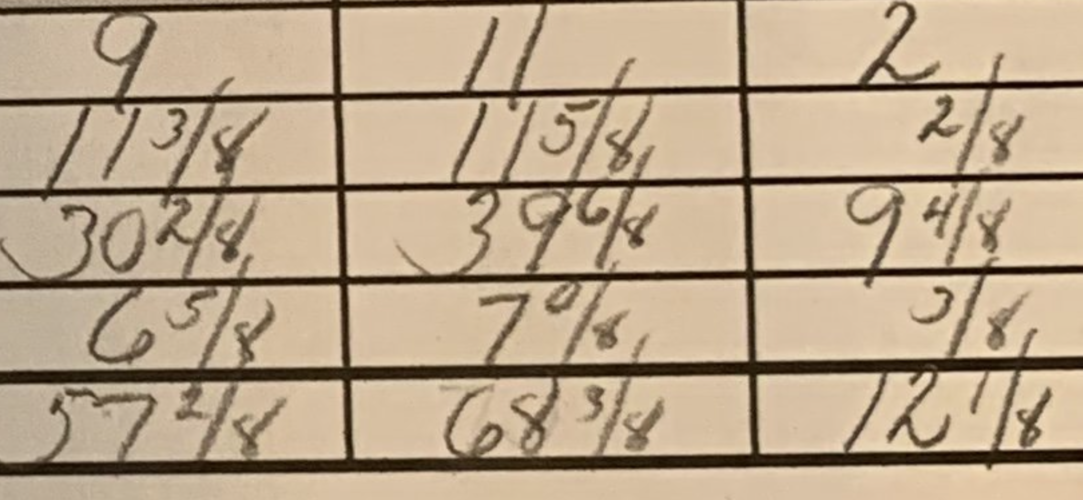 9 11 2
11 3/8 11 5/8 2/8
30 2/8 39 6/8 9 4/8
6 5/8 7 0/8 3/8
57 2/8 68 3/8 12 1/8